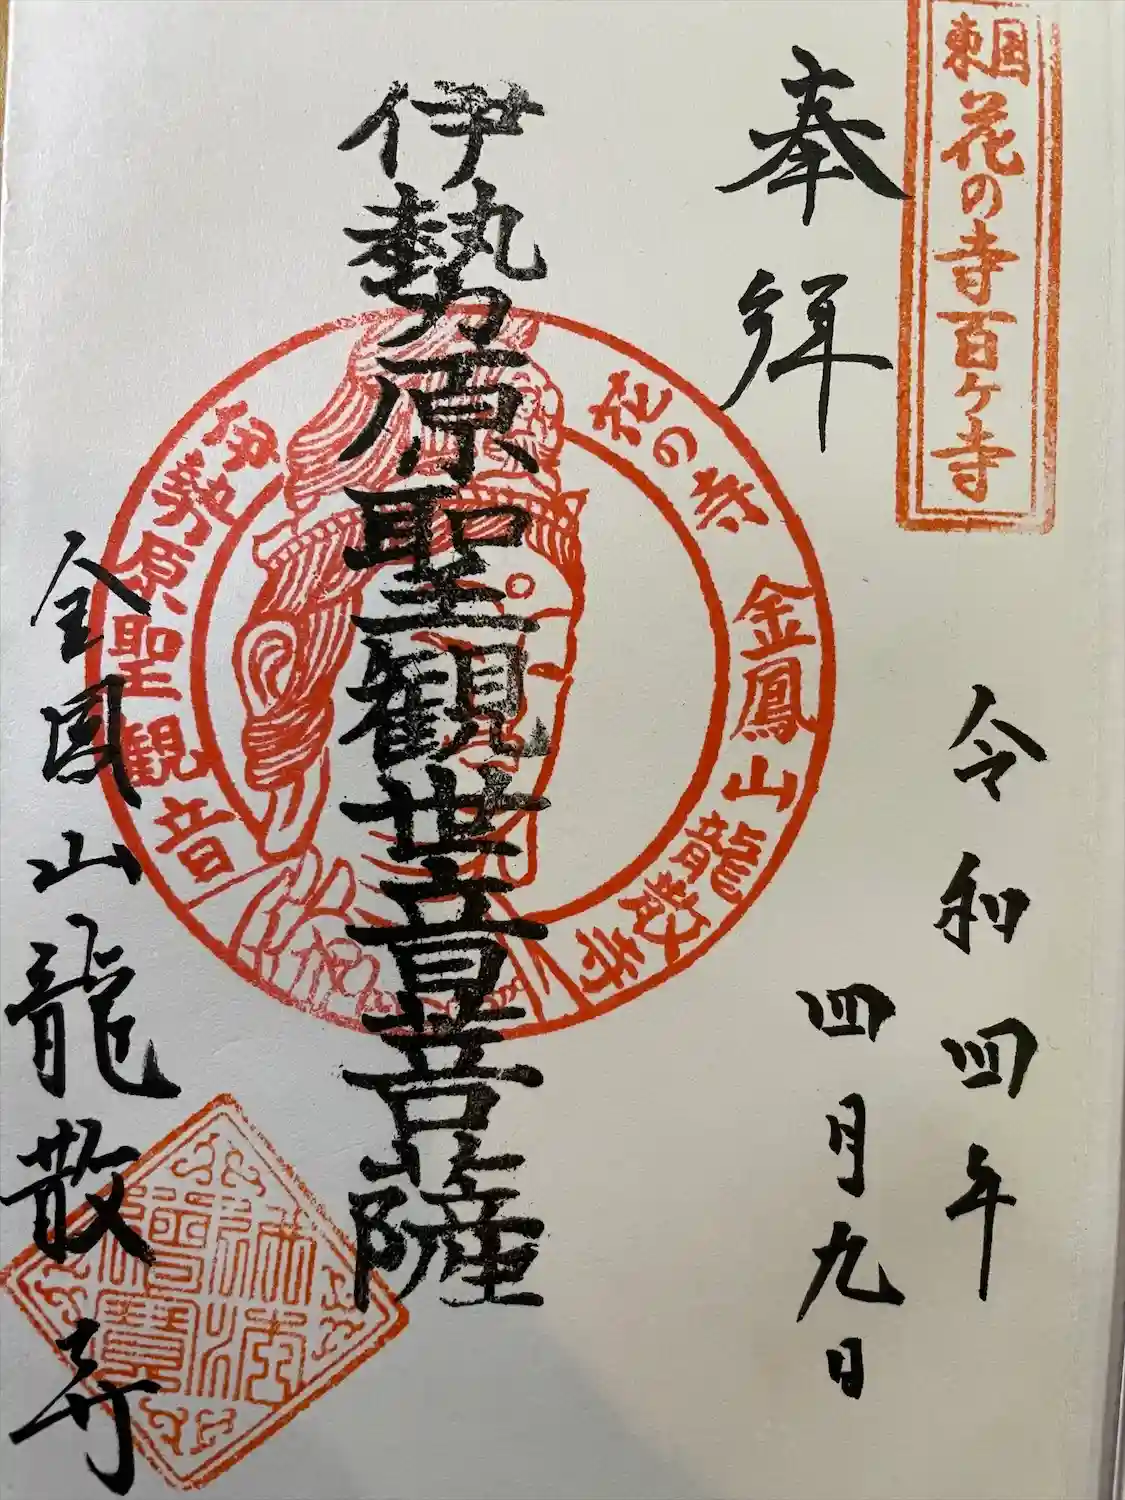 東国花の寺百ヶ寺
奉拝
令和四年
四月九日
伊勢原聖観世音菩薩
花の寺 金鳳山龍散寺
伊勢原聖観音
金鳳山龍散寺